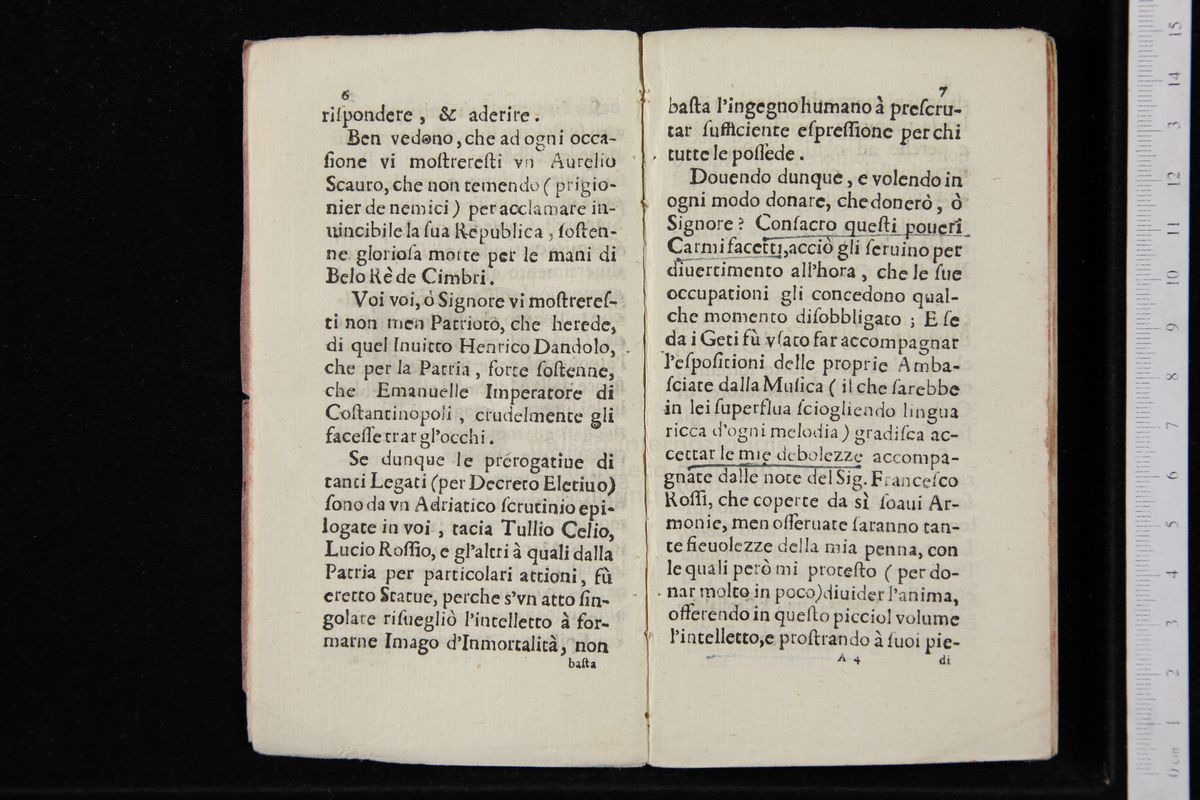 6
riſpondere, & aderire.
Ben vedono, che ad ogni occa-
ſione vi moſtrereſti vn Aurelio
Scauro, che non temendo (prigio-
nier de nemici) per acclamare in-
uincibile la ſua Republica, ſoſten-
ne glorioſa morte per le mani di
Belo Rè de Cimbri.
Voi voi, ò Signore vi moſtrereſ-
ti non men Patrioto, che herede,
di quel Inuitto Henrico Dandolo,
che per la Patria, forte ſoſtenne,
che Emanuelle Imperatore di
Coſtantinopoli, crudelmente gli
faceſſe trar gl'occhi.
Se dunque le prerogatiue di
tanti Legati (per Decreto Eletiuo)
ſono da vn Adriatico ſcrutinio epi-
logate in voi, tacia Tullio Celio,
Lucio Roſſio, e gl'altri à quali dalla
Patria per particolari attioni, fù
eretto Statue, perche s'vn atto ſin-
golare riſuegliò l'intelletto à for-
marne Imago d'Inmortalità, non
baſta
7
baſta l'ingegno humano à preſcru-
tar ſufficiente eſpreſſione per chi
tutte le poſſede.
Douendo dunque, e volendo in
ogni modo donare, che donerò, ò
Signore? Conſacro queſti poueri
Carmi facetti, acciò gli ſeruino per
diuertimento all'hora, che le ſue
occupationi gli concedono qual-
che momento diſobbligato; E ſe
da i Geti fù vſato far accompagnar
l'eſpoſitioni delle proprie Amba-
ſciate dalla Muſica (il che ſarebbe
in lei ſuperflua ſciogliendo lingua
ricca d'ogni melodia) gradiſca ac-
cettar le mie debolezze accompa-
gnate dalle note del Sig. Franceſco
Roſſi, che coperte da sì ſoaui Ar-
monie, men oſſeruate ſaranno tan-
te fieuolezze della mia penna, con
le quali però mi proteſto (per do-
nar molto in poco) diuider l'anima,
offerendo in queſto picciol volume
l'intelletto, e proſtrando à ſuoi pie-
A 4
di
0 cm 1 2 3 4 5 6 7 8 9 10 11 12 13 14 15